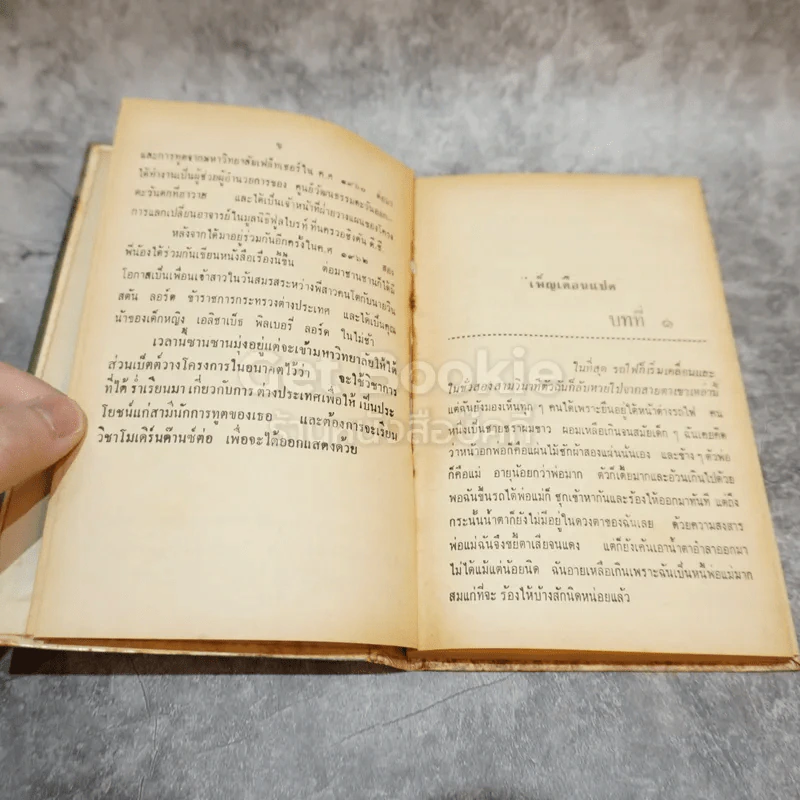 ข
และการทูตจากมหาวิทยาลัยเฟล็ทเชอร์ใน ค.ศ ๑๙๖๑
ได้ทำงานเป็นผู้ช่วยผู้อำนวยการของ ศูนย์วัฒนธรรมตะวันออก-
ตะวันตกที่ฮาวาย และได้เป็นเจ้าหน้าที่ฝ่ายวางแผนของโครง
การแลกเปลี่ยนอาจารย์ในมูลนิธิฟูลไบรท์ ที่นครวอชิงตัน ดี.ซี
หลังจากได้มาอยู่ร่วมกันอีกครั้งใน ค.ศ ๑๙๖๒ สอง
พี่น้องได้ร่วมกันเขียนหนังสือเรื่องนี้ขึ้น ต่อมาซานซานก็ได้มี
โอกาสเป็นเพื่อนเจ้าสาวในวันสมรสระหว่างพี่สาวคนโตกับนายวิน
สตัน ลอร์ด ข้าราชการกระทรวงต่างประเทศ และได้เป็นคุณ
น้าของเด็กหญิง เอลิซาเบ็ธ พิลเบอรี่ ลอร์ด ในไม่ช้า
เวลานี้ซานซานมุ่งอยู่แต่จะเข้ามหาวิทยาลัยให้ได้
ส่วนเบ็ตต์วางโครงการในอนาคตไว้ว่า จะใช้วิชาการ
ที่ได้ ร่ำเรียนมา เกี่ยวกับการ ต่างประเทศเพื่อให้ เป็นประ
โยชน์แก่สามีนักการทูตของเธอ และต้องการจะเรียน
วิชาโมเดิร์นด๊านซ์ต่อ เพื่อจะได้ออกแสดงด้วย
เพ็ญเดือนแปด
บทที่ ๑
ในที่สุด รถไฟก็เริ่มเคลื่อนและ
ในชั่วสองสามวินาทีตัวฉันก็ลับหายไปจากสายตาเขาเหล่านี้
แต่ฉันยังมองเห็นทุก ๆ คนได้เพราะยืนอยู่ใต้หน้าต่างรถไฟ คน
หนึ่งเป็นชายชราผมขาว ผอมเหลือเกินจนสมัยเด็ก ๆ ฉันเคยคิด
ว่าหน้าอกพ่อก็คือแผ่นไม้ซักผ้าสองแผ่นนั่นเอง และข้าง ๆ ตัวพ่อ
ก็คือแม่ อายุน้อยกว่าพ่อมาก ตัวก็เตี้ยมากและอ้วนเกินไปด้วย
พอฉันขึ้นรถได้พ่อแม่ก็ ซุกเข้าหากันและร้องไห้ออกมาทันที แต่ถึง
กระนั้นน้ำตาก็ยังไม่มีอยู่ในดวงตาของฉันเลย ด้วยความสงสาร
พ่อแม่ฉันจึงขยี้ตาเสียจนแดง แต่ก็ยังเค้นเอาน้ำตาอำลาออกมา
ไม่ได้แม้แต่น้อยนิด ฉันอายเหลือเกินเพราะฉันเป็นหนี้พ่อแม่มาก
สมแก่ที่จะ ร้องไห้บ้างสักนิดหน่อยแล้ว